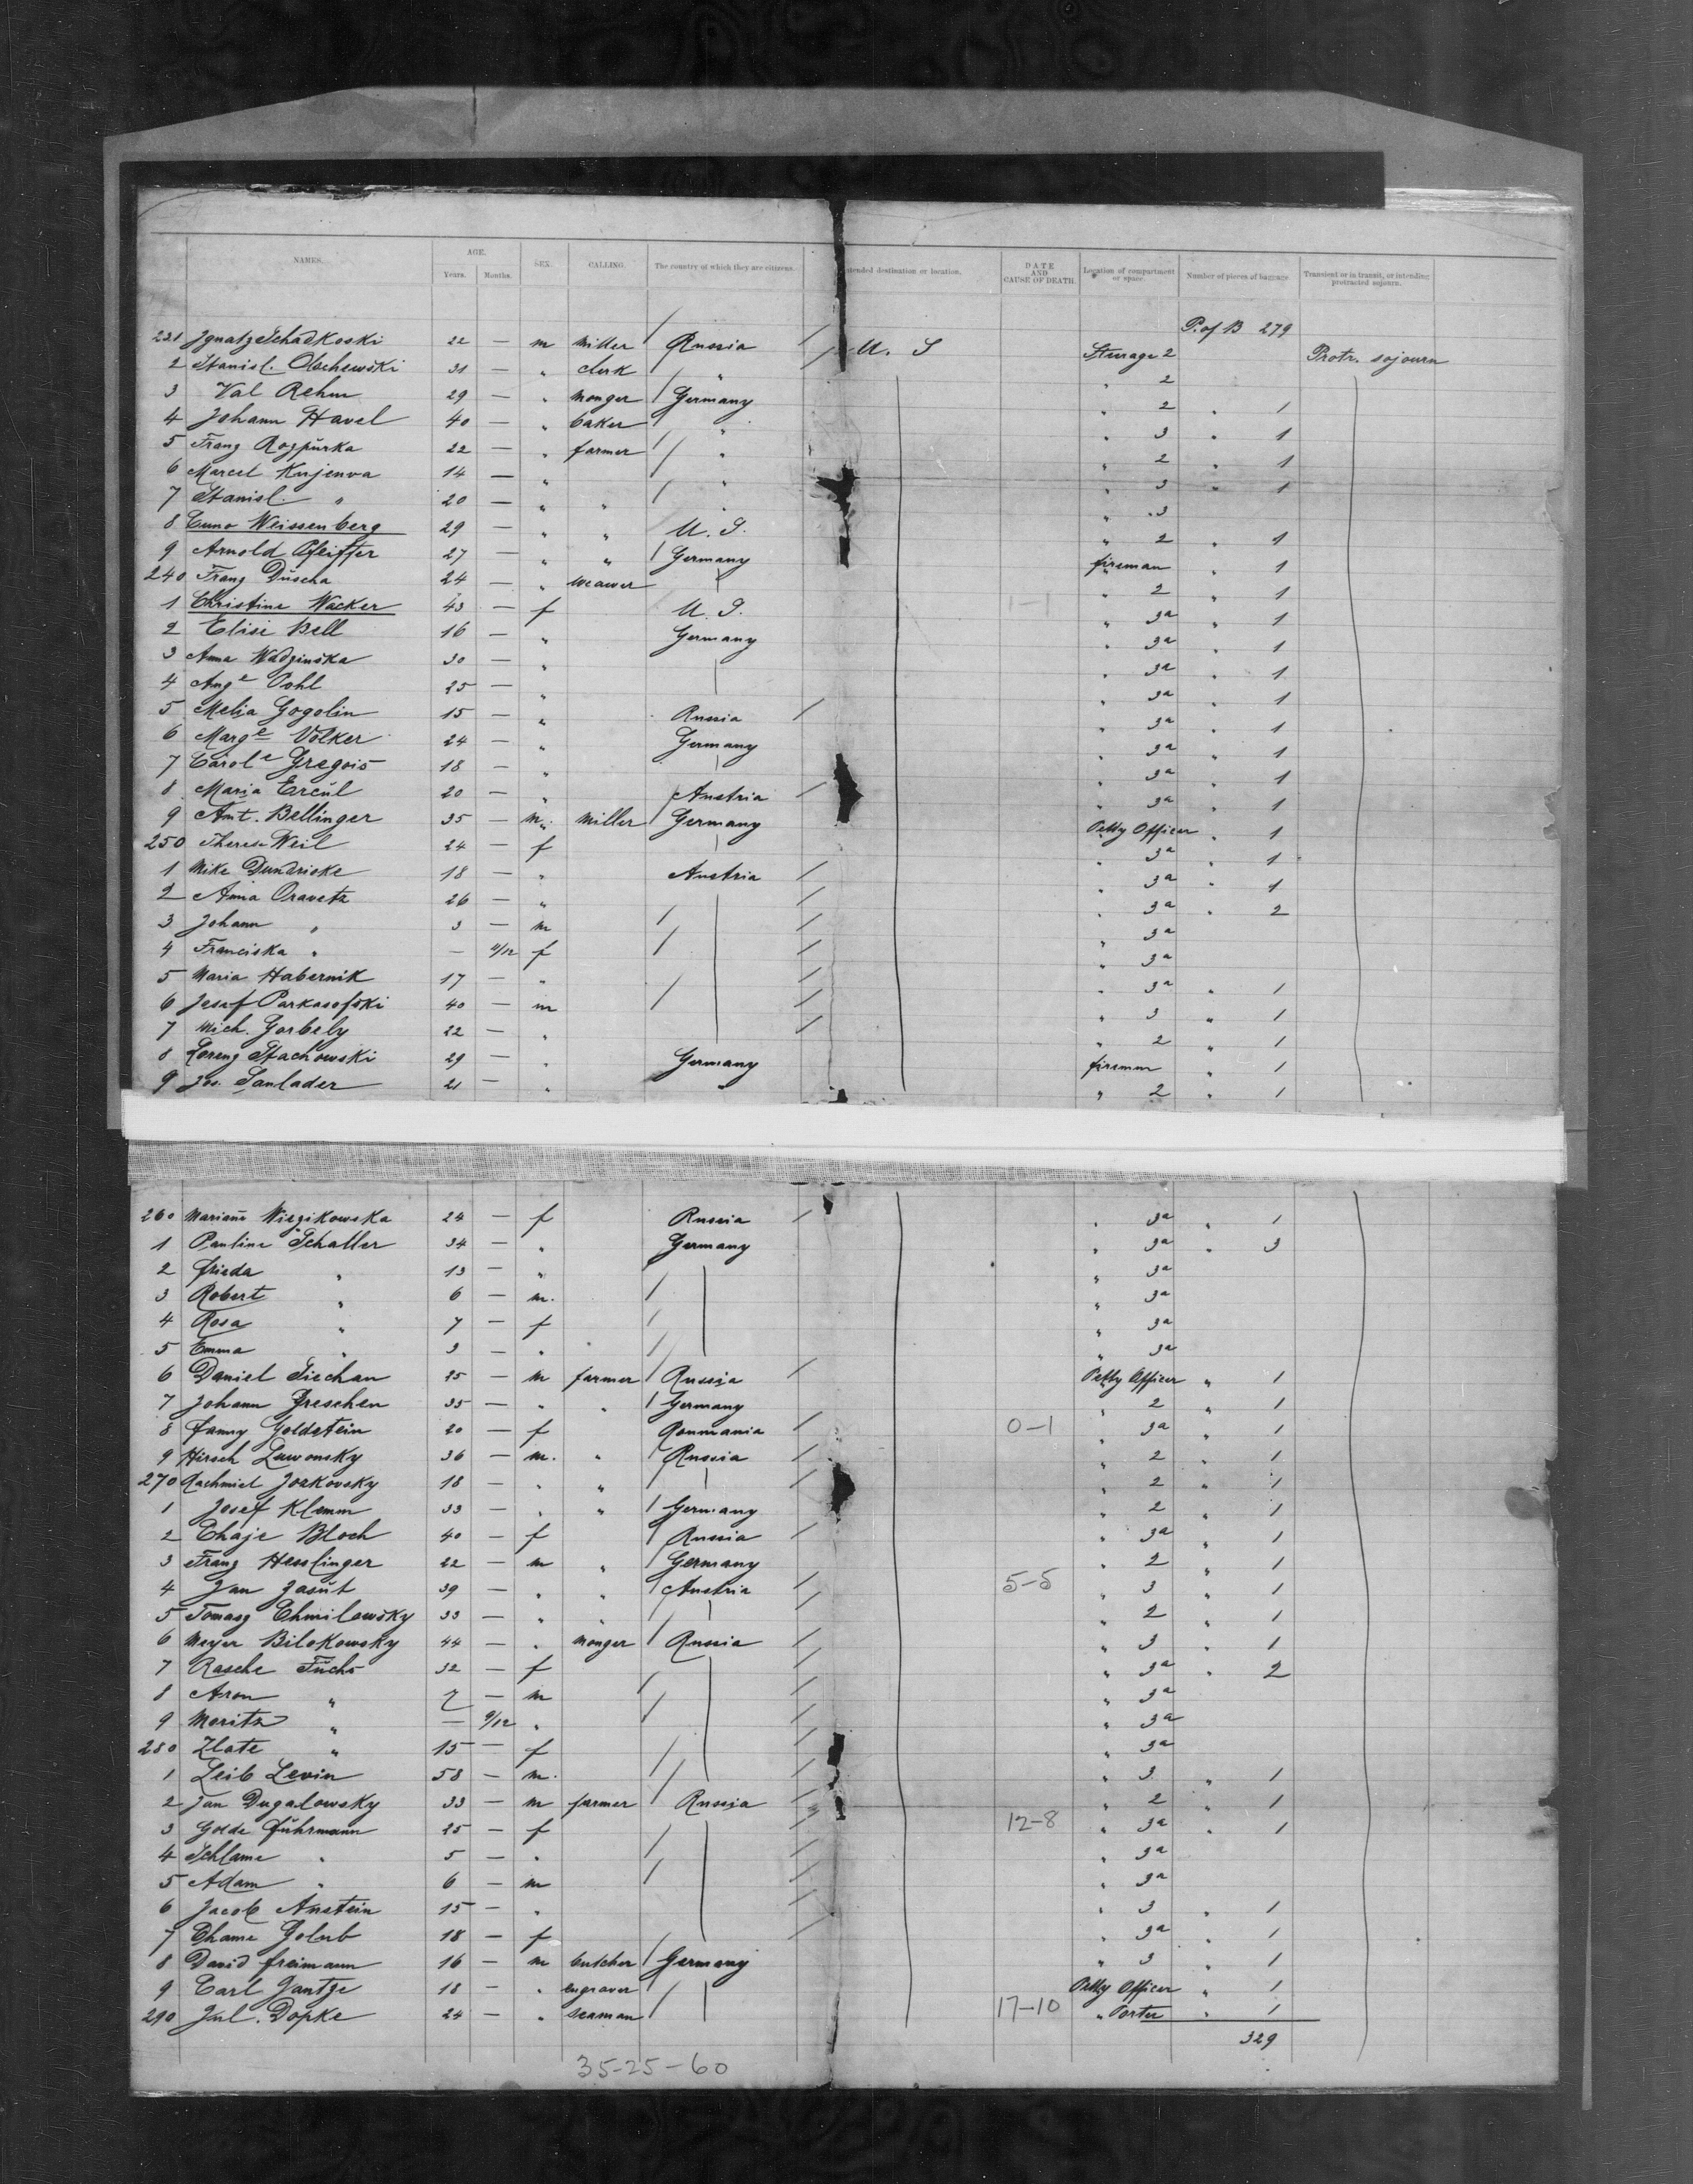 NAMES. AGE. Years. Months. SEX. CALLING. The country of which they are citizens. Intended destination or location. DATE AND CAUSE OF DEATH. Location of compartment or space. Number of pieces of baggage Transient or in transit, or intending protracted sojourn.
P. of B 279
231 Ignatz Schadkoski 22 — m Miller Russia U. S Steerage 2 Protr. sojourn
2 Stanisl. Olschewski 31 — " clerk " " 2
3 Val Rehm 29 — " Monger Germany " 2 " 1
4 Johann Havel 40 — " baker " " 3 " 1
5 Franz Rozpurka 22 — " farmer " " 2 " 1
6 Marcel Kujenva 14 — " " " 3 " 1
7 Stanisl. " 20 — " " " " 3
8 Cuno Weissenberg 29 — " " U. S. " 2 " 1
9 Arnold Pfeiffer 27 — " " Germany fireman " 1
240 Franz Duscha 24 — " weawer " 2 " 1
1 Christine Wacker 43 — f U. S. 1-1 " 3a " 1
2 Elise Bell 16 — " Germany " 3a " 1
3 Anna Wadzinska 30 — " " 3a " 1
4 Auge Pohl 25 — " " 3a " 1
5 Melja Gogolin 15 — " Russia " 3a " 1
6 Marge Völker 24 — " Germany " 3a " 1
7 Carole Gregois 18 — " " 3a " 1
8 Maria Ercul 20 — " Austria " 3a " 1
9 Ant. Bellinger 35 — m. Miller Germany Petty Officer " 1
250 Therese Weil 24 — f " 3a " 1
1 Mike Dundricke 18 — " Austria " 3a " 1
2 Anna Oravetz 26 — " " 3a " 2
3 Johann " 3 — m " 3a
4 Franciska " — 11/12 f " 3a
5 Maria Habernik 17 — " " 3a " 1
6 Josef Parkasofski 40 — m " 3 " 1
7 Mich. Gorbely 22 — " " 2 " 1
8 Lorenz Stachowski 29 — " Germany fireman " 1
9 Jos. Sanlader 21 — " " " 2 " 1
260 Mariane Wiezikowska 24 — f Russia " 3a " 1
1 Pauline Schaller 34 — " Germany " 3a " 3
2 Frieda " 13 — " " 3a
3 Robert " 6 — m. " 3a
4 Rosa " 7 — f " 3a
5 Emma " 3 — " " 3a
6 Daniel Tiechan 25 — m farmer Russia Petty Officer " 1
7 Johann Dreschen 35 — " " Germany " 2 " 1
8 Fanny Goldstein 20 — f Roumania 0-1 " 3a " 1
9 Hirsch Lawonsky 36 — m. " Russia " 2 " 1
270 Rachmiel Joskovsky 18 — " " " 2 " 1
1 Josef Klemm 33 — " " Germany " 2 " 1
2 Chaje Bloch 40 — f Russia " 3a " 1
3 Franz Hesslinger 22 — m " Germany " 2 " 1
4 Jan Jasut 39 — " " Austria 5-5 " 3 " 1
5 Tomasz Chmilowsky 33 — " " " 2 " 1
6 Meyer Bilokowsky 44 — " Monger Russia " 3 " 1
7 Rasche Fuchs 32 — f " 3a " 2
8 Aron " 7 — m " 3a
9 Moritz " — 9/12 " " 3a
280 Zlate " 15 — f " 3a
1 Leib Levin 58 — m. " 3 " 1
2 Jan Dugalowsky 33 — m farmer Russia " 2 " 1
3 Golde Fuhrmann 25 — f 12-8 " 3a " 1
4 Schlame " 5 — " " 3a
5 Adam " 6 — m " 3a
6 Jacob Anstein 15 — " " 3 " 1
7 Chame Golub 18 — f " 3a " 1
8 David Freimann 16 — m butcher Germany " 3 " 1
9 Carl Jantze 18 — " engraver Petty Officer " 1
290 Jul. Dopke 24 — " seaman 17-10 " Porter " 1
329
35-25-60